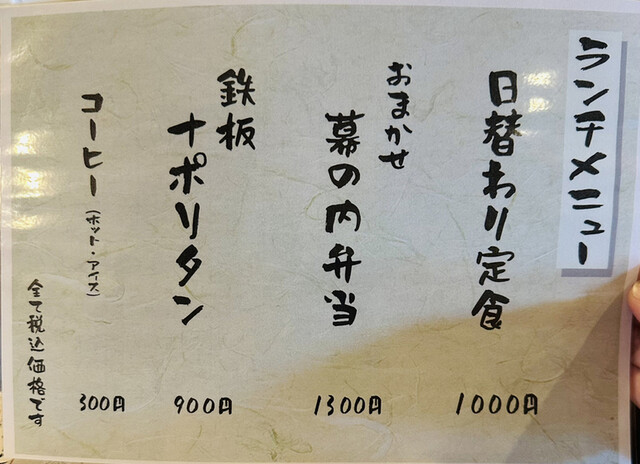 ランチメニュー
日替わり定食
1000円
おまかせ
幕の内弁当
1300円
鉄板
ナポリタン
900円
コーヒー(ホット・アイス)
300円
全て税込価格です